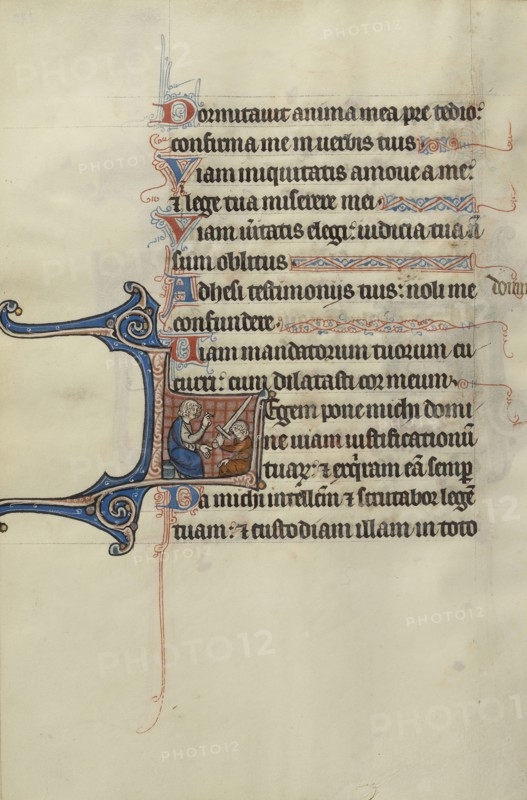 Dormitauit anima mea pre tedio:
confirma me in uerbis tuis
Viam iniquitatis amoue a me:
⁊ lege tua miserere mei.
Viam ūitatis elegi: iudicia tua nō
sum oblitus.
Adhesi testimoniis tuis: noli me domine
confundere.
Uiam mandatorum tuorum cu
curri: cum dilatasti cor meum.
Legem pone michi domi
ne uiam iustificationū
tuaꝝ: ⁊ exq̇ram eā semꝑ
Da michi intellc̄m ⁊ scrutabor legē
tuam: ⁊ custodiam illam in toto
PHOTO12